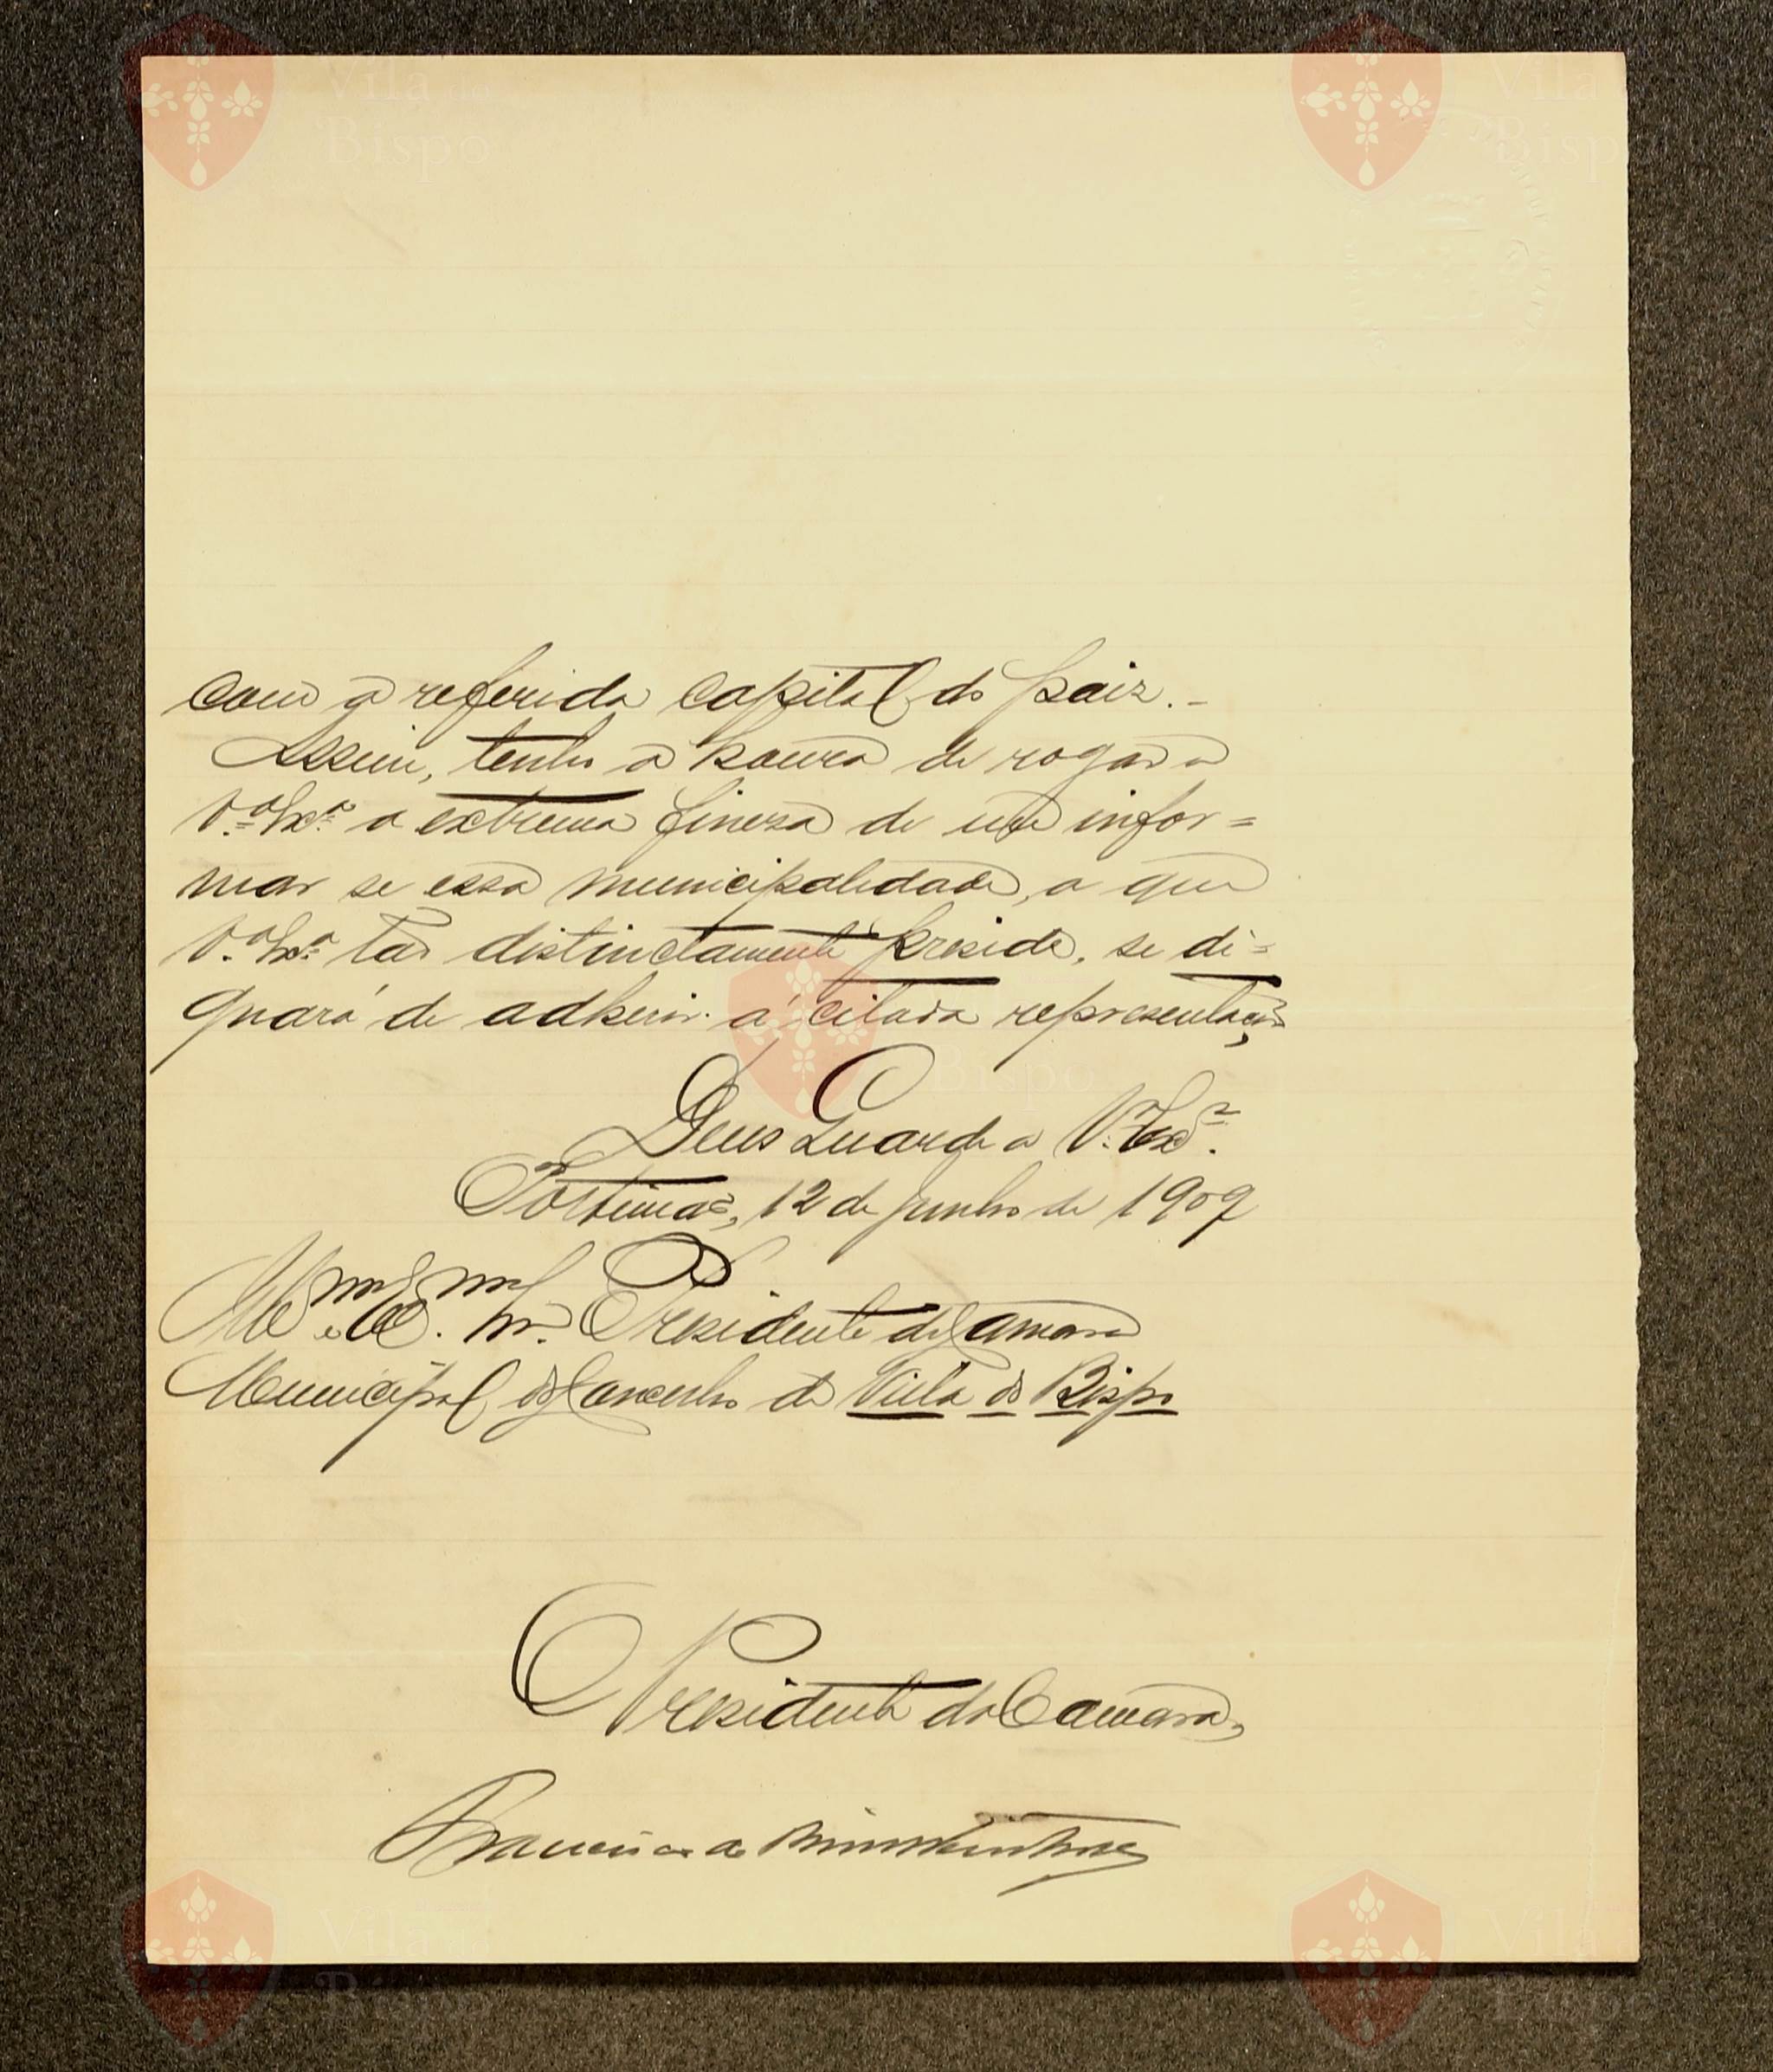 com a referida capital do paiz.-
Assim, tenho a honra de rogar a
V.ª Ex.ª a extrema fineza de me infor=
mar se essa municipalidade, a que
V.ª Ex.ª tão distinctamente preside, se di=
gnará de adherir á citada representação,
Deus Guarde a V.ª Ex.ª.
Portimão, 12 de Junho de 1909
Ill.mo e Ex.mo Sr. Presidente da Camara
Municipal do Concelho de Villa do Bispo
O Presidente da Camara,
Francisco de
Vila do
Bispo
Vila
Bispo
Bispo
Vila
Bispo
Vila
Bispo